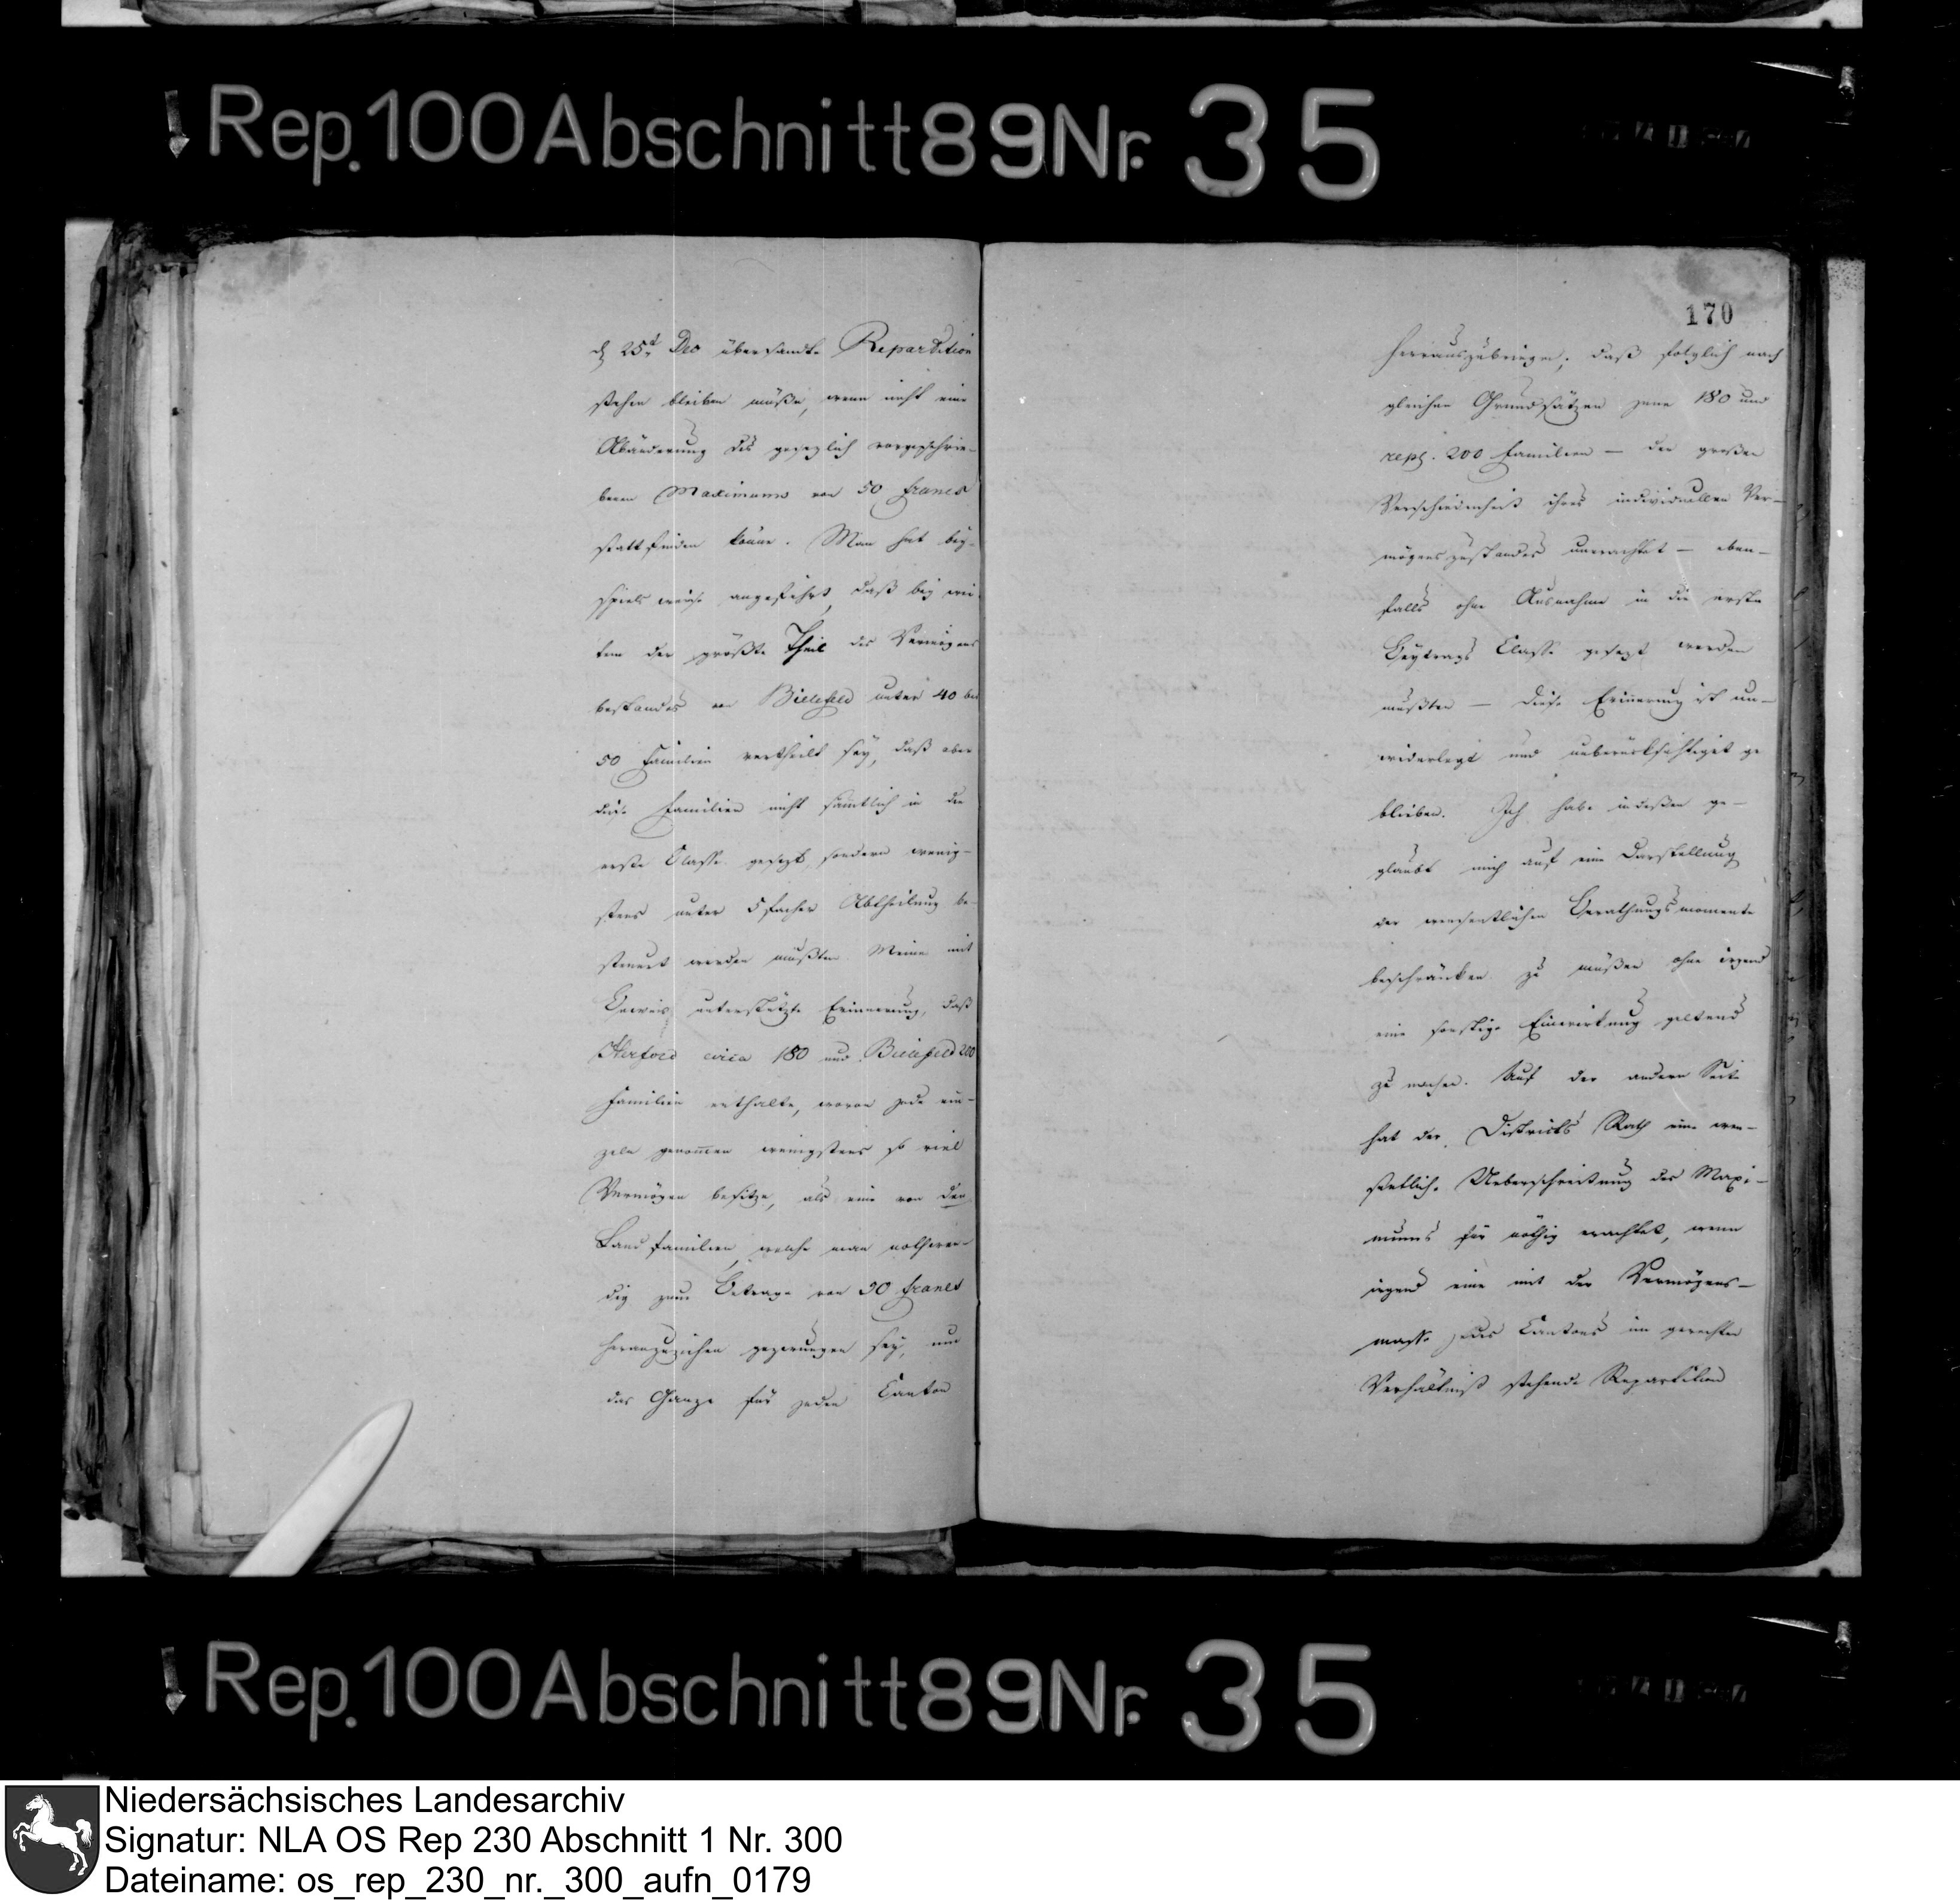 Rep. 100 Abschnitt 89 Nr. 35
d 25t Dec übersandte Repartition
stehen bleiben müße, wenn nicht eine
Abänderung des gesezlich vorgeschrie-
benen Maximums von 50 francs
statt finden könne. Man hat bey-
spiels weise angeführt, daß bey wei-
tem der größte Theil des Vermögens
bestandes von Bielefeld unter 40 bis
50 Familien vertheilt sey, daß aber
diese Familien nicht sämtlich in die
erste Classe gesezt, sondern wenig-
stens unter 5 facher Abtheilung be-
steuert werden müßten. Meine mit
Beweis unterstützte Erinnerung, daß
Herford circa 180 und Bielefeld 200
Familien enthalte, wovon jede ein-
zeln genommen wenigstens so viel
Vermögen besitze, als eine von den
Land familien, welche man nothwen-
dig zum Betrage von 50 francs
heranzuziehen gezwungen sey, um
das Ganze für jeden Canton
170
herauszubringen; daß folglich nach
gleichen Grundsätzen jene 180 und
resp. 200 Familien — der großen
Verschiedenheit ihres individuellen Ver-
mögenszustandes unerachtet — eben-
falls ohne Ausnahme in die erste
Beytrags Classe gesezt werden
müßten — diese Erinnerung ist un-
widerlegt und unberücksichtiget ge
blieben. Ich habe indeßen ge-
glaubt mich auf eine Darstellung
der wesentlichen Berathungsmomente
beschränken zu müßen ohne irgend
eine sonstige Einwirkung geltend
zu machen. Auf der andern Seite
hat der Districts Rath eine we-
sentliche Ueberschreitung des Maxi-
mums für nöthig erachtet, wenn
irgend eine mit der Vermögens-
masse jedes Cantons im gerechten
Verhältniß stehende Repartition
Rep. 100 Abschnitt 89 Nr. 35
Niedersächsisches Landesarchiv
Signatur: NLA OS Rep 230 Abschnitt 1 Nr. 300
Dateiname: os_rep_230_nr._300_aufn_0179